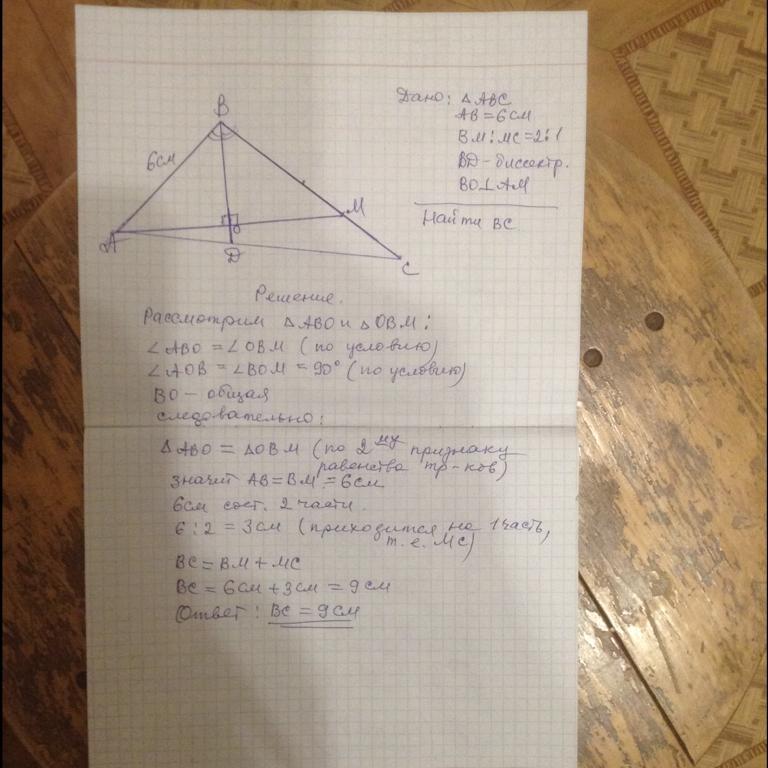 B
6см
A
O
M
D
C
Дано: △ABC
AB = 6 см
BM : MC = 2 : 1
BD - биссектр.
BO ⊥ AM
Найти BC
Решение.
Рассмотрим △ABO и △OBM:
∠ABO = ∠OBM (по условию)
∠AOB = ∠BOM = 90° (по условию)
BO - общая
следовательно:
△ABO = △OBM (по 2му признаку
равенства тр-ков)
значит AB = BM = 6см
6см сост. 2 части.
6 : 2 = 3см (приходится на 1 часть,
т.е. MC)
BC = BM + MC
BC = 6см + 3см = 9см
Ответ: BC = 9см